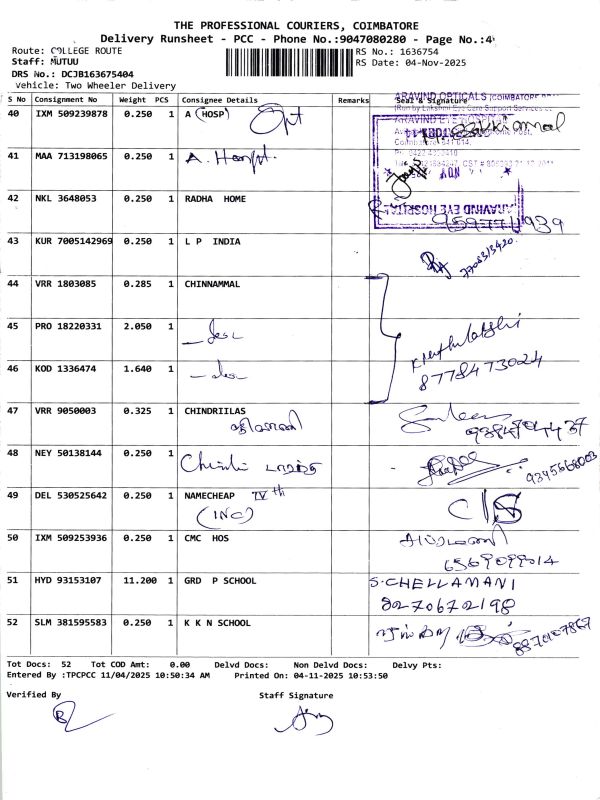 THE PROFESSIONAL COURIERS, COIMBATORE
Delivery Runsheet - PCC - Phone No.:9047080280 - Page No.:4
Route: COLLEGE ROUTE
RS No.: 1636754
Staff: MUTUU
RS Date: 04-Nov-2025
DRS No.: DCJB163675404
Vehicle: Two Wheeler Delivery
S No Consignment No Weight PCS Consignee Details Remarks Seal & Signature
ARAVIND OPTICALS (COIMBATORE
ARAVIND EYE HOSPITAL
40 IXM 509239878 0.250 1 A (HOSP) Opt
41 MAA 713198065 0.250 1 A. Hospt.
ARAVIND EYE HOSPITAL
42 NKL 3648053 0.250 1 RADHA HOME
43 KUR 7005142969 0.250 1 L P INDIA
7708313420
44 VRR 1803085 0.285 1 CHINNAMMAL
45 PRO 18220331 2.050 1
46 KOD 1336474 1.640 1
8778473024
47 VRR 9050003 0.325 1 CHINDRIILAS
48 NEY 50138144 0.250 1
9345668003
49 DEL 530525642 0.250 1 NAMECHEAP IVth
(INC)
50 IXM 509253936 0.250 1 CMC HOS
51 HYD 93153107 11.200 1 GRD P SCHOOL S.CHELLAMANI
8270672198
52 SLM 381595583 0.250 1 K K N SCHOOL
Tot Docs: 52 Tot COD Amt: 0.00 Delvd Docs: Non Delvd Docs: Delvy Pts:
Entered By :TPCPCC 11/04/2025 10:50:34 AM Printed On: 04-11-2025 10:53:50
Verified By Staff Signature